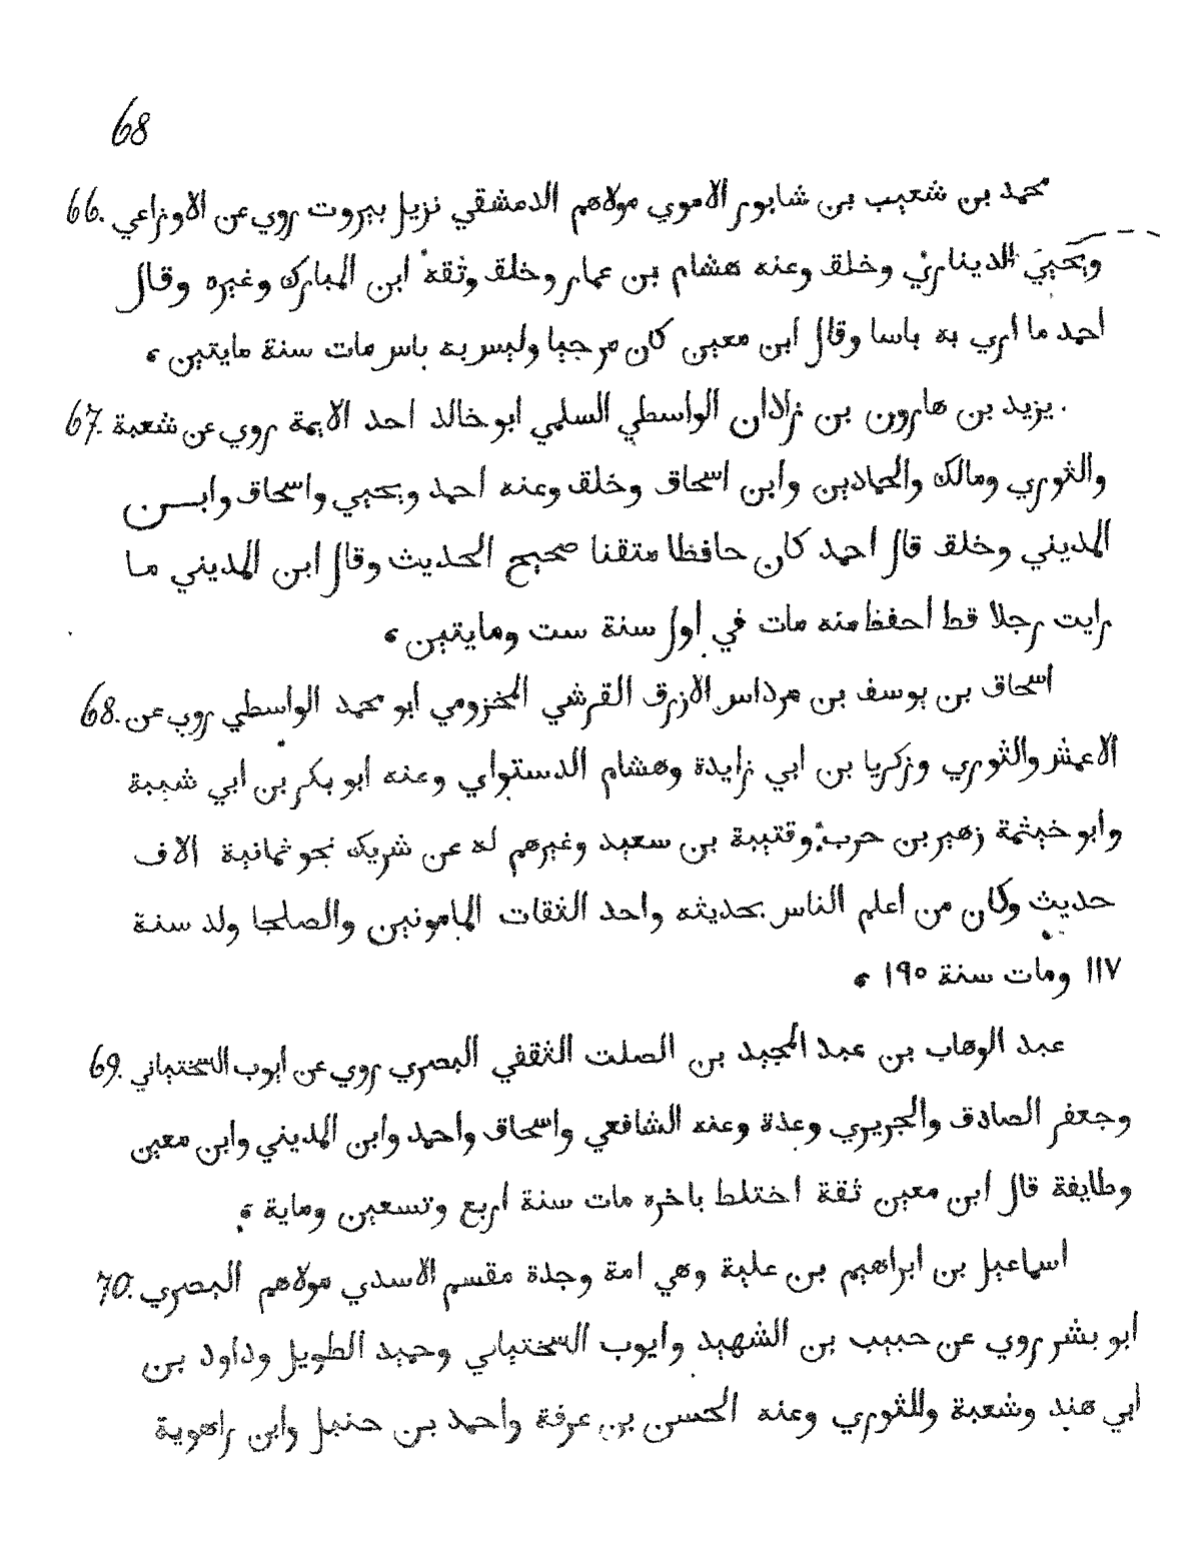 68
66. محمد بن شعيب بن شابور الاموي مولاهم الدمشقي نزيل بيروت روي عن الاوزاعي
ويحيي الديناري وخلق وعنه هشام بن عمار وخلق وثقه ابن المبارك وغيره وقال
احمد ما اري به باسا وقال ابن معين كان مرجيا وليس به باس مات سنة مايتين ،
67. يزيد بن هارون بن زاذان الواسطي السلمي ابو خالد احد الايمة روي عن شعبة
والثوري ومالك والحمادين وابن اسحاق وخلق وعنه احمد ويحيي واسحاق وابن
المديني وخلق قال احمد كان حافظا متقنا صحيح الحديث وقال ابن المديني ما
رايت رجلا قط احفظ منه مات في اول سنة ست ومايتين ،
68. اسحاق بن يوسف بن مرداس الازرق القرشي المخزومي ابو محمد الواسطي روي عن
الاعمش والثوري وزكريا بن ابي زايدة وهشام الدستواي وعنه ابو بكر بن ابي شيبة
وابو خيثمة زهير بن حرب وقتيبة بن سعيد وغيرهم له عن شريك نحو ثمانية الاف
حديث وكان من اعلم الناس بحديثه واحد الثقات المامونين والصلحا ولد سنة
١١٧ ومات سنة ١٩٥ ،
69. عبد الوهاب بن عبد المجيد بن الصلت الثقفي البصري روي عن ايوب السختياني
وجعفر الصادق والجريري وعدة وعنه الشافعي واسحاق واحمد وابن المديني وابن معين
وطايفة قال ابن معين ثقة اختلط باخره مات سنة اربع وتسعين وماية ،
70. اسماعيل بن ابراهيم بن علية وهي امة وجدة مقسم الاسدي مولاهم البصري
ابو بشر روي عن حبيب بن الشهيد وايوب السختياني وحميد الطويل وداود بن
ابي هند وشعبة والثوري وعنه الحسن بن عرفة واحمد بن حنبل وابن راهوية